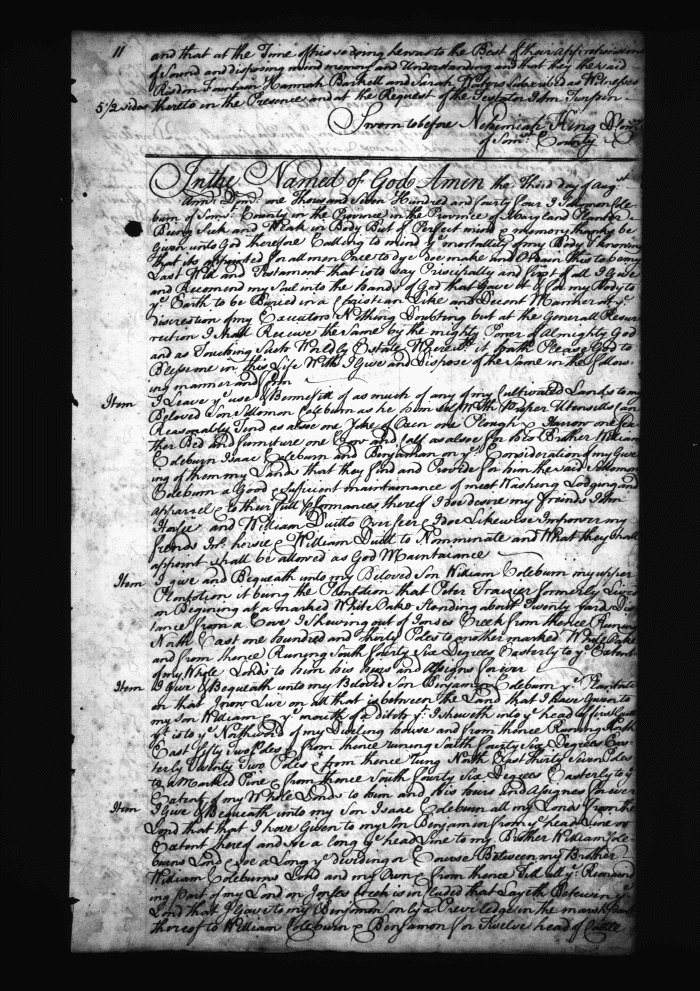 11 and that at the Time of his so doing he was to the Best of their apprehensions
of Sound and disposing mind memory and Understanding and that they the said
Risdon Fountain Hannah Barkell and Sarah Waters Subscribed as Witnesses
5 1/2 sides thereto in the Presence and at the Request of the Testator John Turpin
Sworn to before Nehemiah King
of Somt. County
In the Named of God Amen the Third day of Augst
Ann Dom: one Thous and Seven Hundred and fourty four I Solomon Cole-
burn of Somt. County in the Province in the Province of Maryland Planter
Being Sick and Weak in Body But of Perfect mind & memory thanks be
Given unto God therefore Calling to mind ye mortality of my Body & knowing
that it is appointed for all men Once to dye doe make and Ordain this to be my
Last Will and Testament that is to Say Principally and first of all I Give
and Recomend my Soul into the hands of God that Gave it & for my Body to
ye Earth to be Buried in a Christian Like and Decent Manner at ye
discrestion of my Executors Nothing Doubting but at the Generall Resur
rection I Shall Receive the Same by the mighty Power of Almighty God
and as Touching Such Worldly Estate Wherewith it hath Please God to
Bless me in this Life With I Give and Dispose of the Same in the follow-
ing manner and form
Item I Leave ye use & Bennefitt of as much of any of my Cultivated Lands to my
Beloved Son Solomon Coleburn as he him self With Proper Utensills Can
Reasonably Tend as also one Yoke of Oxen one Plough & Harrow one fea
ther Bed and furniture one Cow and Calf as also for his Brother William
Coleburn Isaac Coleburn and Benjaman on ye Consideration of my Give
ing of them my Lands that they find and Provide for him the said Sollomon
Coleburn a Good & Sufficient maintainance of meet Washing Lodging and
apparel & to their full Performances thereof I doe desire my freinds John
and William Duitt to Over See & doe Likewise Impower my
freinds Jno. & William Duitt to Nomminate and What they Shall
appoint Shall be allowed as God Maintainance
Item I give and Bequeath unto my Beloved Son William Coleburn my upper
Plantation it being the Plantation that Peter formerly Lived
on Begining at a marked White Oake Standing about Twenty yards Dis
tance from a Cove Ishewing out of Jones Creek from thence Runing
North East one hundred and thirty Poles to another marked White Oake
and from thence Runing South fourty Six Degrees Easterly to ye Extent
of my Whole Lands to him his heirs and assigns for ever
Item I Give & Bequeath unto my Beloved Son Benjamin Coleburn ye Plantate
on that I now Live on all that is between the Land that I have Given to
my son William & ye mouth of a ditch yt Isheweth into ye head of
yt is to ye Northward of my Dweling house and from thence Runing North
East fifty Two Poles & from thence runing South fourty Six Degrees Eas-
terly Twenty Two Poles & from thence rung North East thirty Seven Poles
to a Marked Pine & from thence South fourty Six Degrees Easterly to ye
Extent of my Whole Lands to him and His heirs and assignes for ever
Item I Give & Bequeath unto my Son Isaac Coleburn all my Lands from the
Land that that I have Given to my Son Benjamin from ye head Line or
Extent thereof and soe a long ye head Line to my Brother William Cole
burns Land & soe a Long ye dividing or Course Between my Brother
William Coleburns Land and my Own & from thence Till all ye Remaind
ing Part of my Land on Jones Creek is included that Layeth Between ye
Land that I Gave to my Benjamon only a Previledge in the marsh
thereof to William Coleburn & Benjamon for Twelve head of Cattle